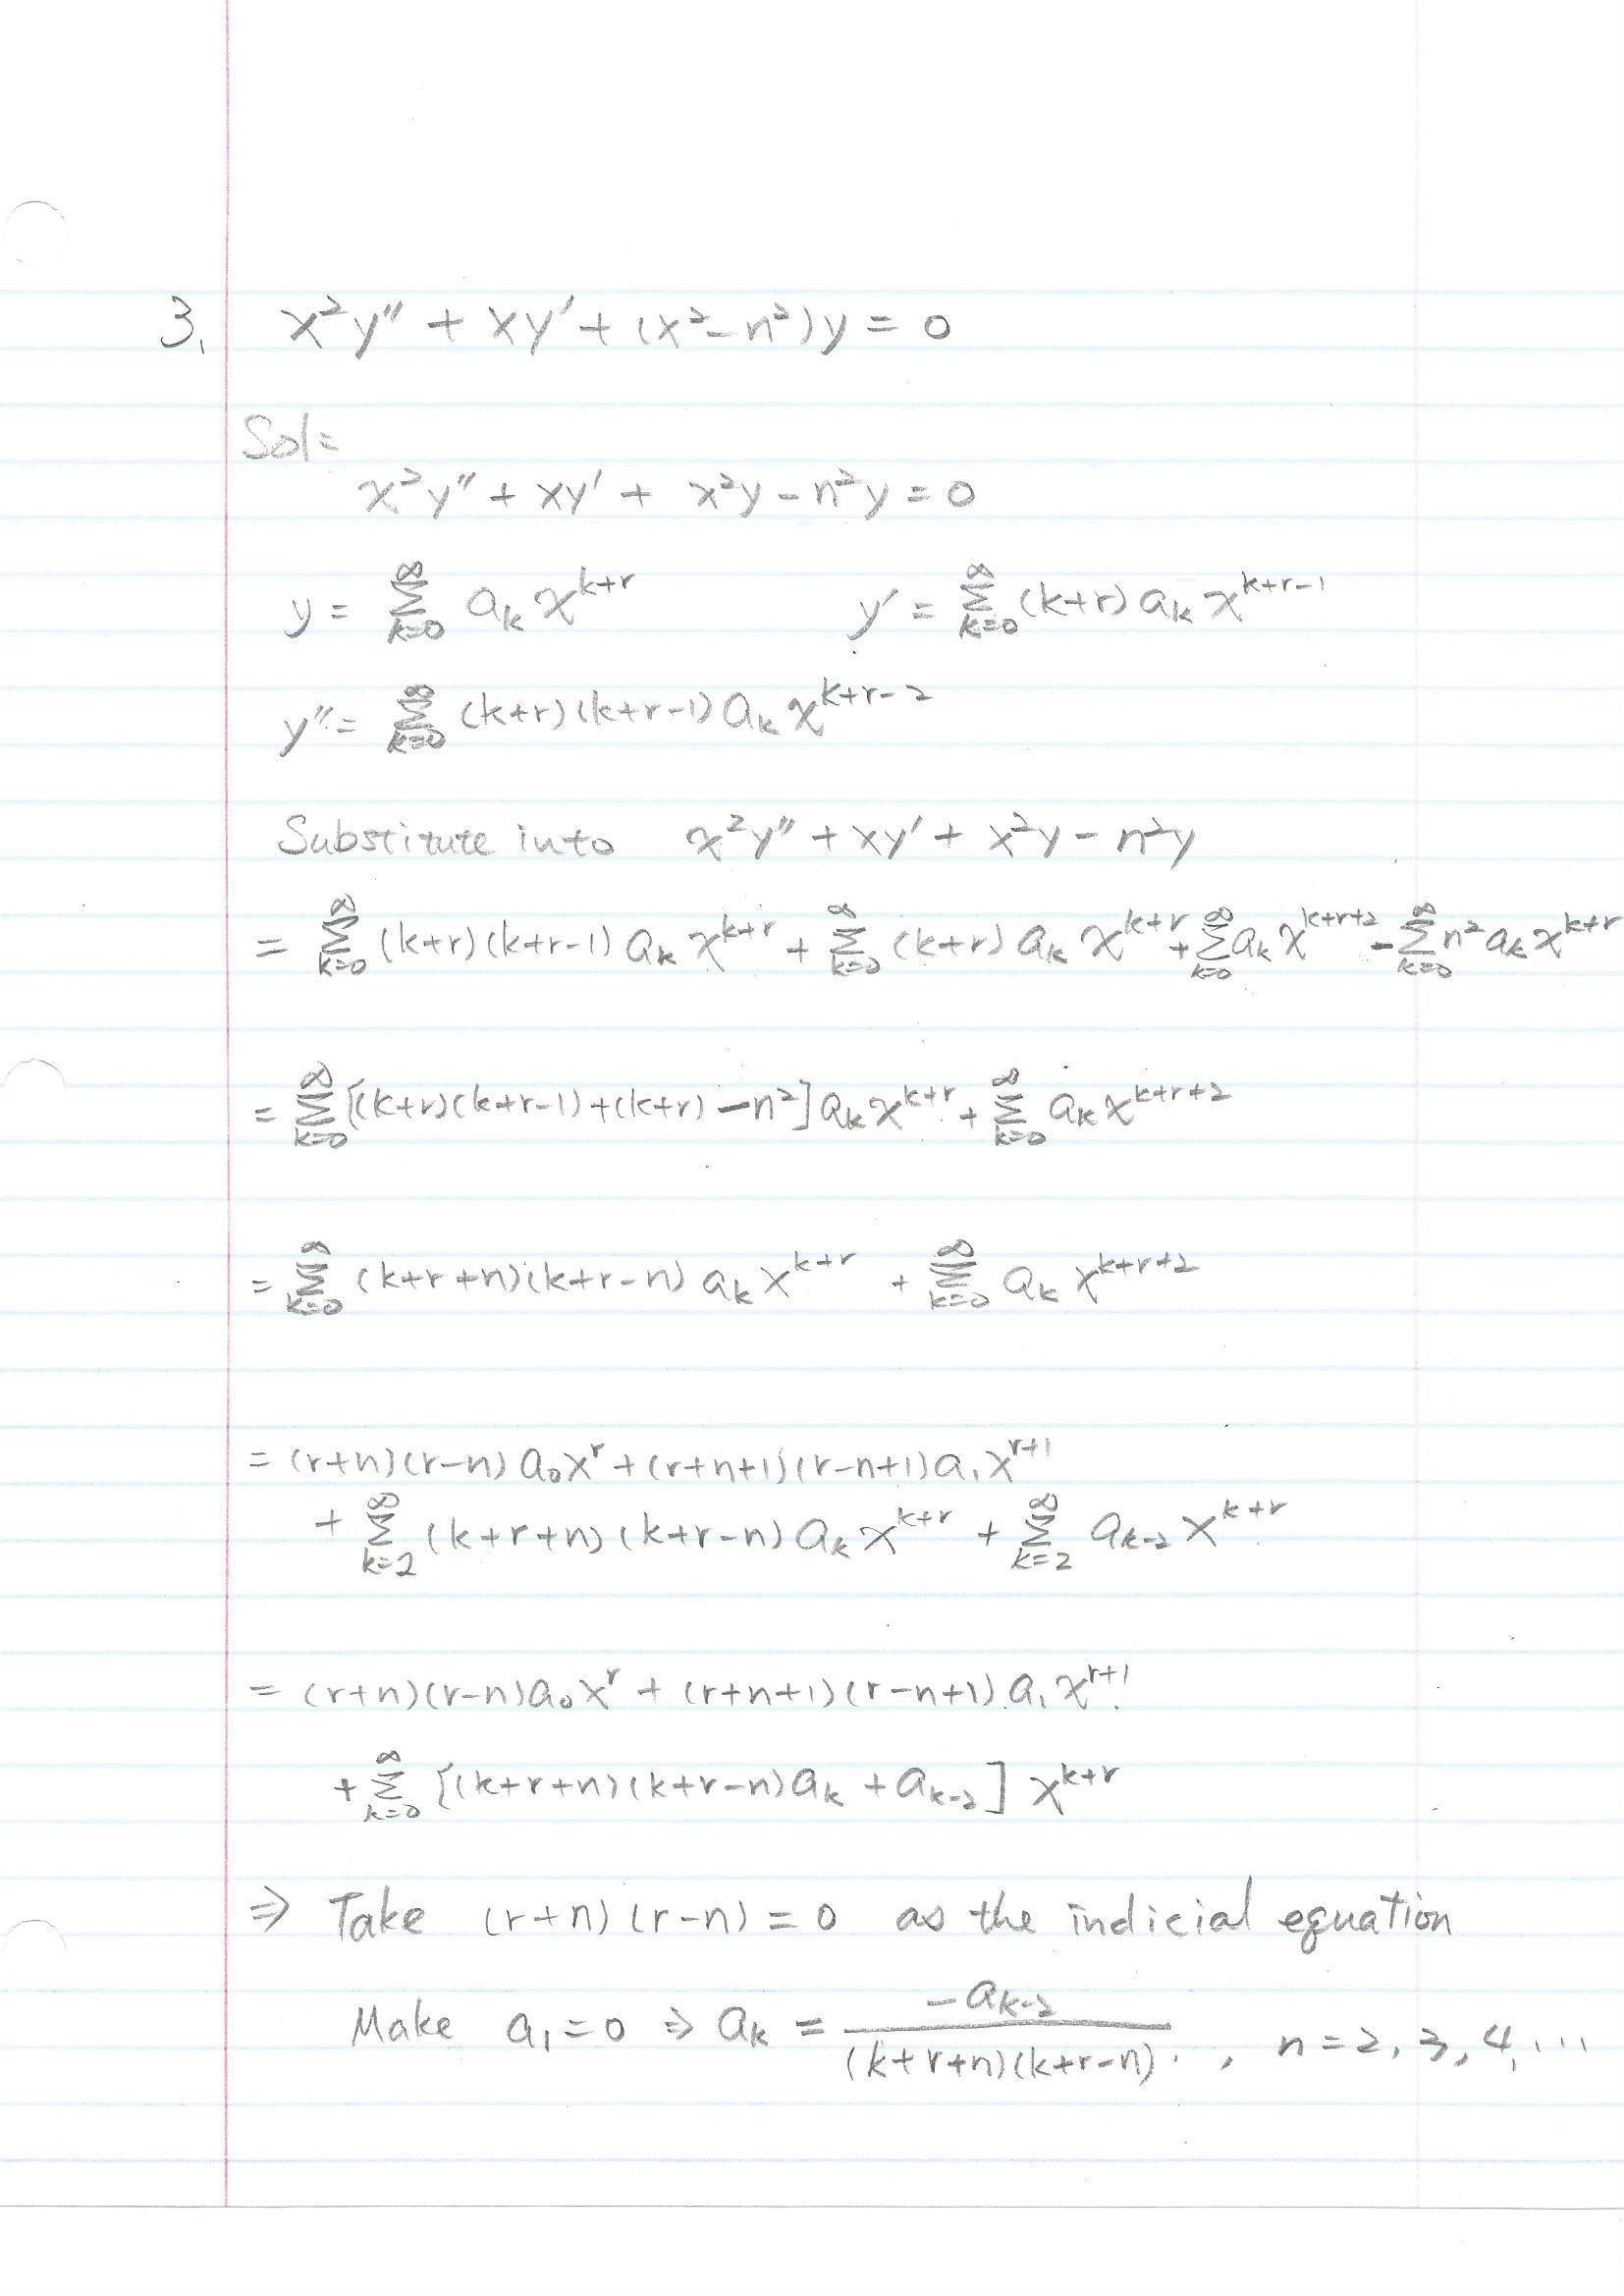 3. x²y'' + xy' + (x²-n²)y = 0
Sol:
x²y'' + xy' + x²y - n²y = 0
y = \sum_{k=0}^{∞} a_k x^{k+r} y' = \sum_{k=0}^{∞} (k+r) a_k x^{k+r-1}
y'' = \sum_{k=0}^{∞} (k+r)(k+r-1) a_k x^{k+r-2}
Substitute into x²y'' + xy' + x²y - n²y
= \sum_{k=0}^{∞} (k+r)(k+r-1) a_k x^{k+r} + \sum_{k=0}^{∞} (k+r) a_k x^{k+r} + \sum_{k=0}^{∞} a_k x^{k+r+2} - \sum_{k=0}^{∞} n² a_k x^{k+r}
= \sum_{k=0}^{∞} [(k+r)(k+r-1)+(k+r)-n²] a_k x^{k+r} + \sum_{k=0}^{∞} a_k x^{k+r+2}
= \sum_{k=0}^{∞} (k+r+n)(k+r-n) a_k x^{k+r} + \sum_{k=0}^{∞} a_k x^{k+r+2}
= (r+n)(r-n) a_0 x^r + (r+n+1)(r-n+1) a_1 x^{r+1}
+ \sum_{k=2}^{∞} (k+r+n)(k+r-n) a_k x^{k+r} + \sum_{k=2}^{∞} a_{k-2} x^{k+r}
= (r+n)(r-n) a_0 x^r + (r+n+1)(r-n+1) a_1 x^{r+1}
+ \sum_{k=0}^{∞} [(k+r+n)(k+r-n) a_k + a_{k-2}] x^{k+r}
⇒ Take (r+n)(r-n) = 0 as the indicial equation
Make a_1 = 0 ⇒ a_k = \frac{-a_{k-2}}{(k+r+n)(k+r-n)}, n = 2, 3, 4, ...